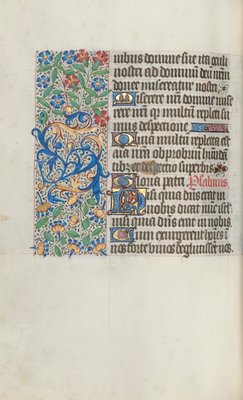 nubus domine sue ita oculi
nostri ad dominum deu nrm
donec misereatur nostri
Miserere nri domine mise
rere nri qr multu repleti su
mus despectione
Quia multu repleta est
aia nra obprobriu habunda
tib et despectio superbis
Gloria patri Psalmus
Nisi quia dns erat in
nobis dicat nuc isrl
nisi quia dns erat in nobis
Cum exurgerent hoies i
nos forte vivos deglutisset nos